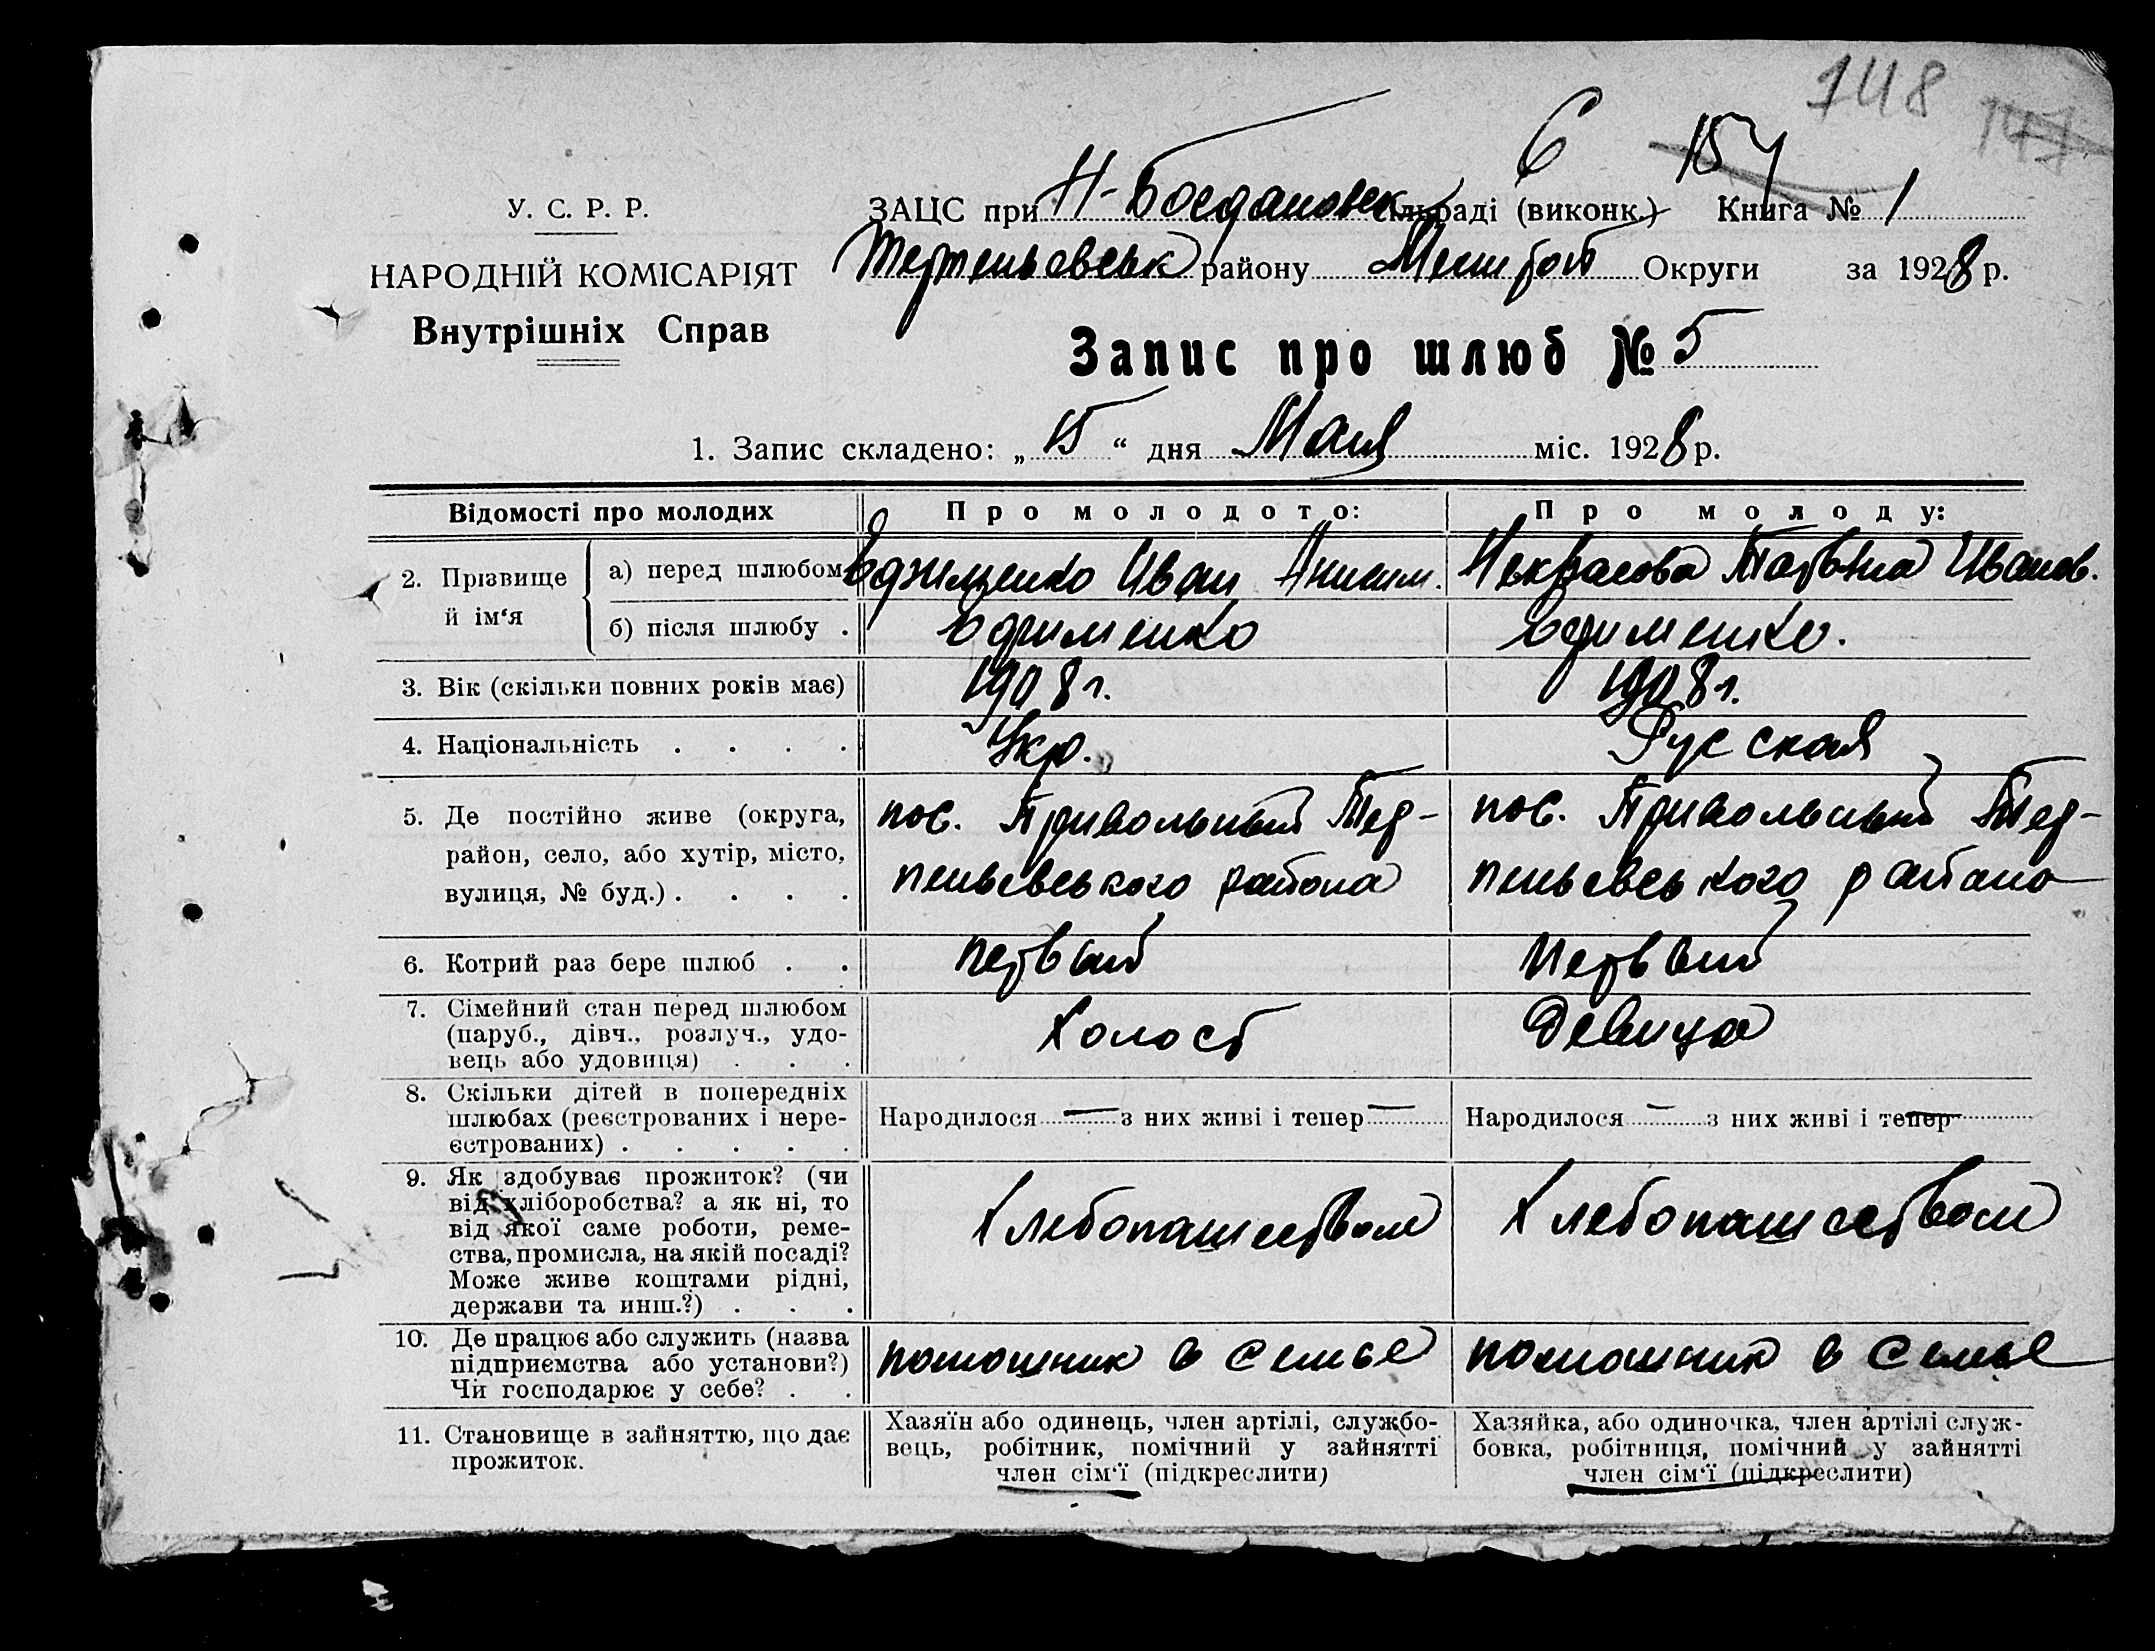 148 147
6 154
У. С. Р. Р.
НАРОДНІЙ КОМІСАРІЯТ
Внутрішніх Справ
ЗАЦС при Н-Богдановск сільраді (виконк.) Книга № 1
району Округи за 1928 р.
Запис про шлюб № 5
1. Запис складено: „ 15 “ дня Мая міс. 1928 р.
Відомості про молодих Про молодого: Про молоду:
2. Прізвище й ім‘я а) перед шлюбом Ефименко Иван Аниким. Некрасова Татьяна Иванов.
б) після шлюбу . Ефименко Ефименко.
3. Вік (скільки повних років має) 1908 г. 1908 г.
4. Національність . . . . Укр. Русская
5. Де постійно живе (округа, пос. Привольный Тер- пос. Привольный Тер-
район, село, або хутір, місто, пеньевського района пеньевського района
вулиця, № буд.) . . . .
6. Котрий раз бере шлюб . . первый первый
7. Сімейний стан перед шлюбом
(паруб., дівч., розлуч., удо- Холост Девица
вець або удовиця) . . .
8. Скільки дітей в попередніх
шлюбах (реєстрованих і нере- Народилося — з них живі і тепер — Народилося — з них живі і тепер —
єстрованих) . . . . .
9. Як здобуває прожиток? (чи
від хліборобства? а як ні, то
від якої саме роботи, реме- Хлебопашеством Хлебопашеством
ства, промисла, на якій посаді?
Може живе коштами рідні,
держави та инш.?) . . .
10. Де працює або служить (назва
підприємства або установи?) помошник в семье помошник в семье
Чи господарює у себе? . .
11. Становище в зайняттю, що дає Хазяїн або одинець, член артілі, службо- Хазяйка, або одиночка, член артілі служ-
прожиток. вець, робітник, помічний у зайнятті бовка, робітниця, помічний у зайнятті
член сім‘ї (підкреслити) член сім‘ї (підкреслити)